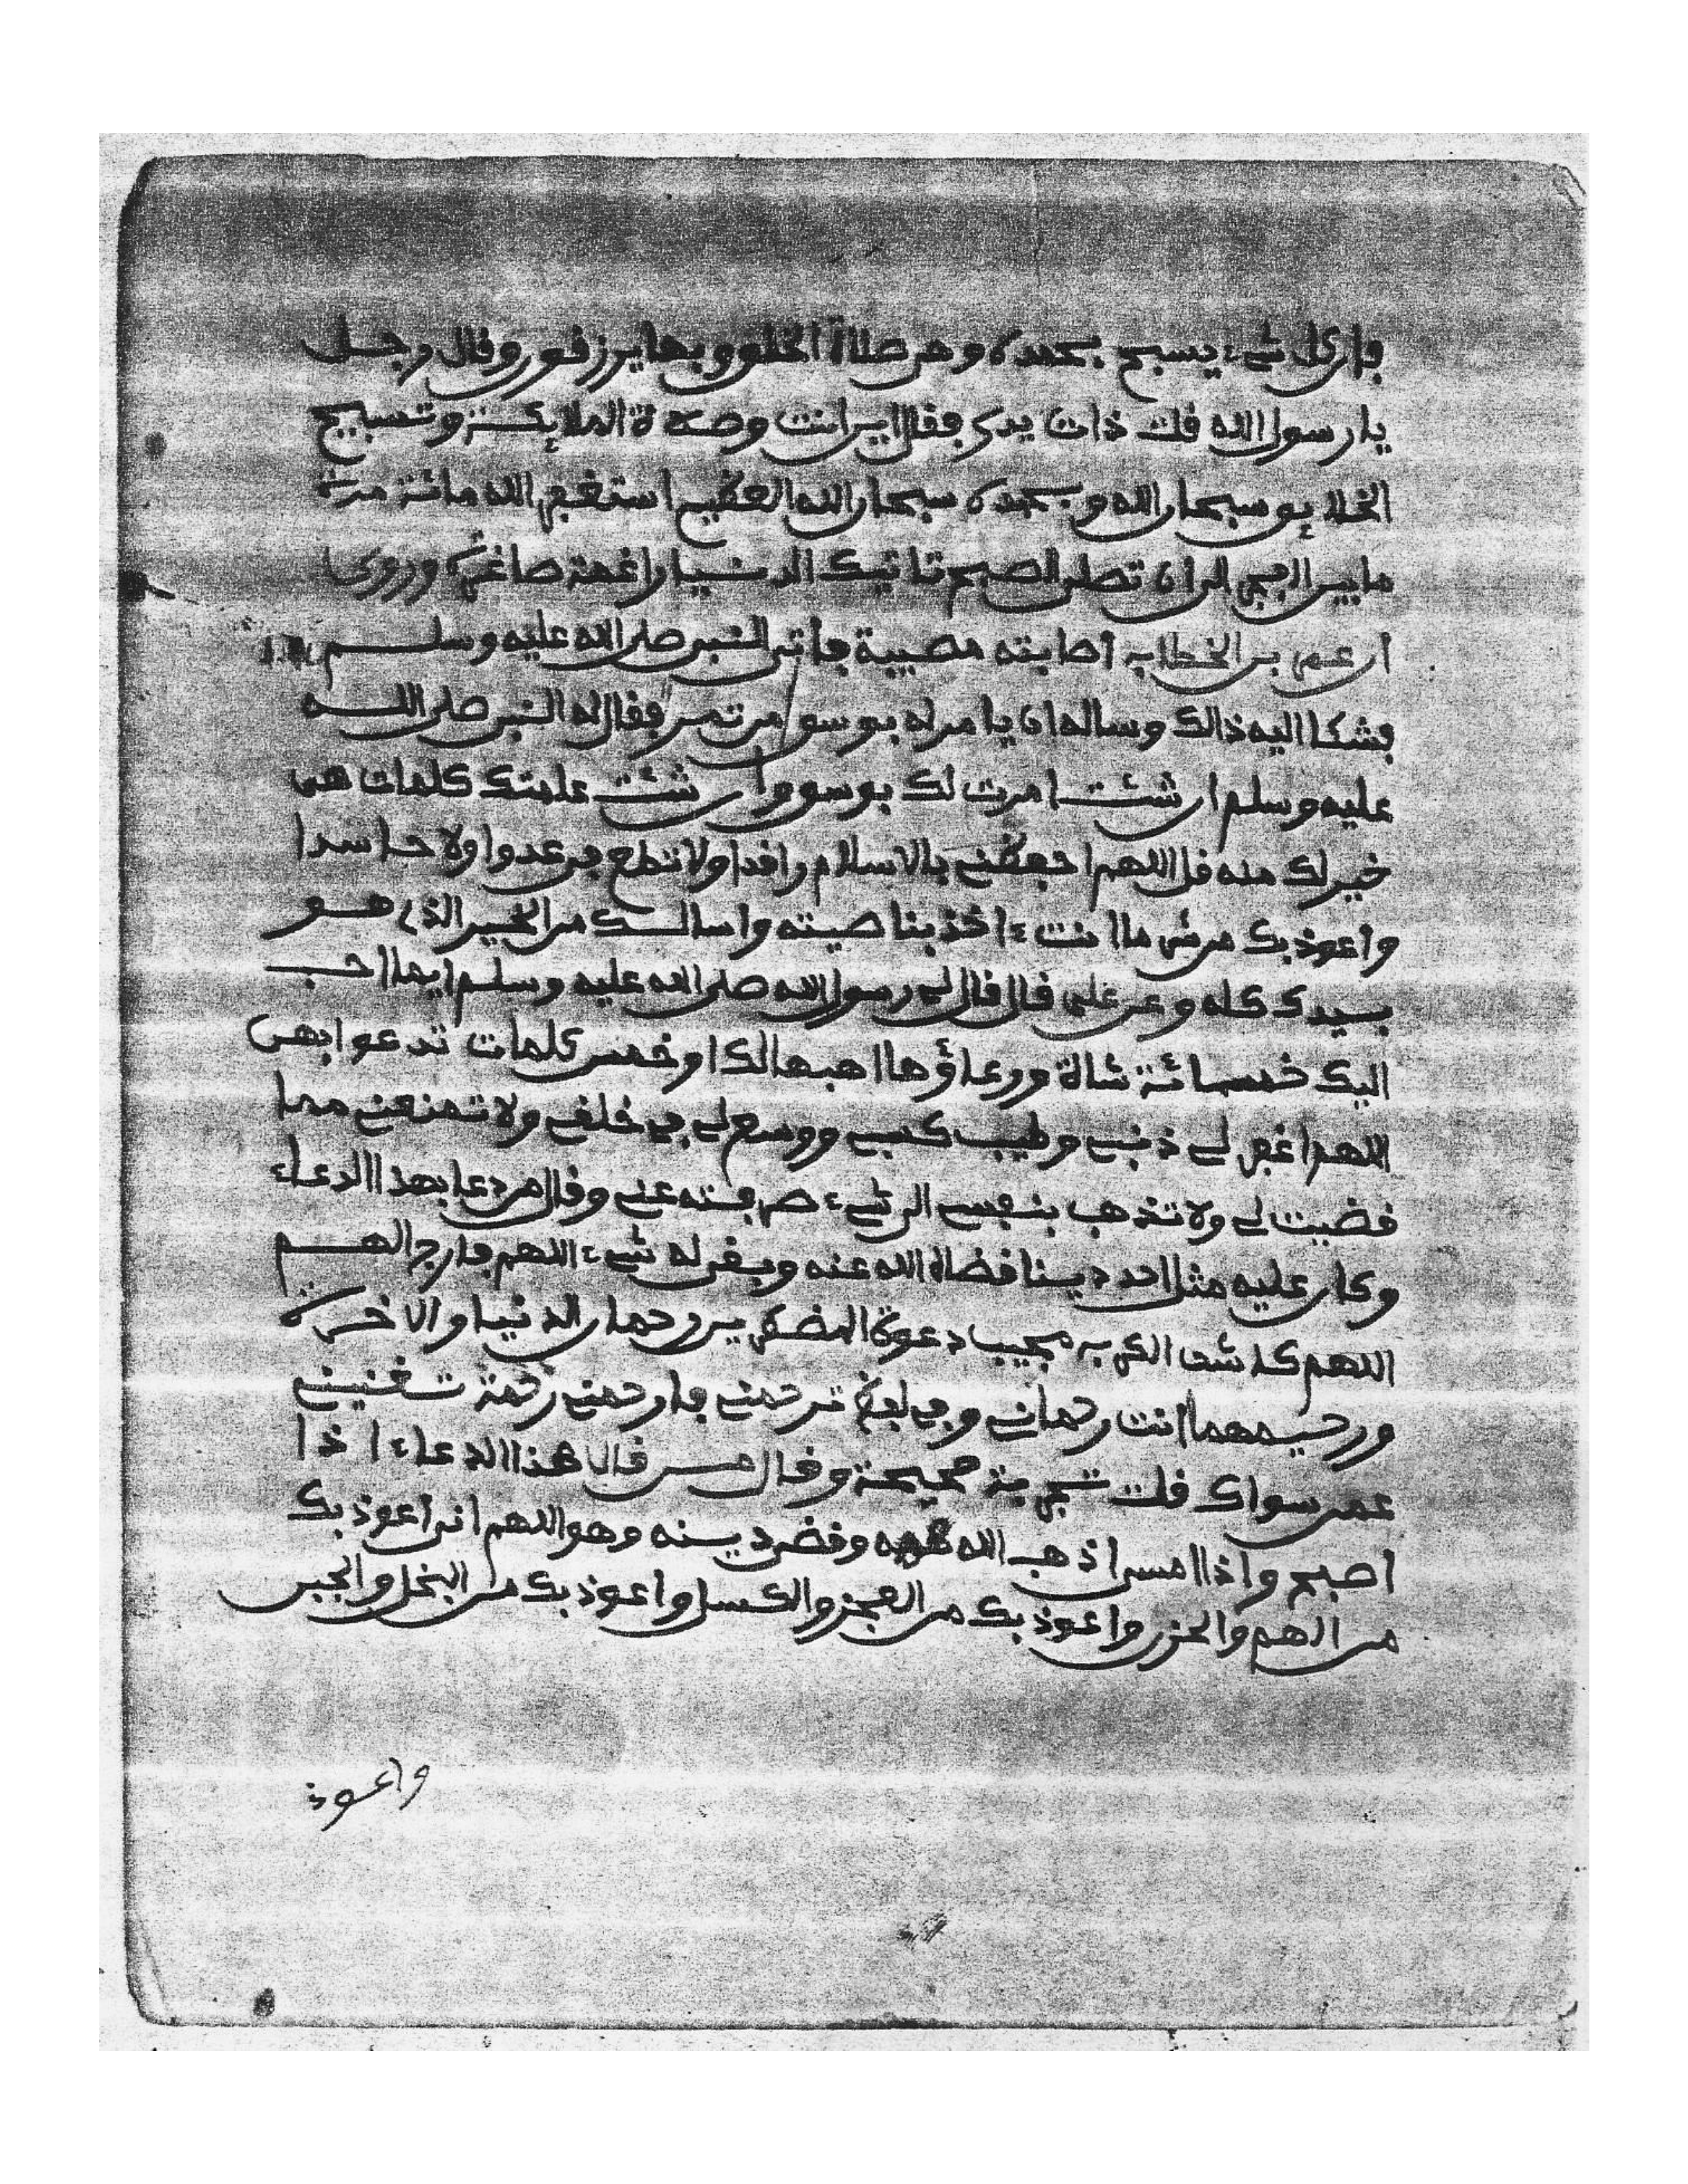 فإن كل شيء يسبح بحمده وهي صلاة الخلق وبها يرزقون وقال رجل
يا رسول الله قلت ذات يدي فقال اين انت وصلاة الملائكة وتسبيح
الخلائق سبحان الله وبحمده سبحان الله العظيم استغفر الله مائة مرة
ما بين الفجر الى ان تصلي الصبح تاتيك الدنيا راغمة صاغرة وروي
ان عمر بن الخطاب اصابته مصيبة فاتى النبي صلى الله عليه وسلم
فشكا اليه ذالك وساله ان يامر له بوسق من تمر فقال له النبي صلى الله
عليه وسلم ان شئت امرت لك بوسق وان شئت علمتك كلمات هي
خير لك منه قل اللهم احفظني بالاسلام راقدا ولا تطع في عدوا ولا حاسدا
واعوذ بك من شر ما انت ءاخذ بناصيته واسالك من الخير الذي هو
بيدك كله وعن علي قال قال لي رسول الله صلى الله عليه وسلم ايما احب
اليك خمسمائة شاة ورعاؤها اهبها لك او خمس كلمات تدعوا بهن
اللهم اغفر لي ذنبي وطيب كسبي ووسع لي في خلقي ولا تمنعني مما
قضيت لي ولا تذهب بنفسي الى شيء صرفته عني وقال من دعا بهذا الدعاء
وكان عليه مثل احد دينا قضاه الله عنه وبقي له شيء اللهم فارج الهم
اللهم كاشف الكرب مجيب دعوة المضطرين رحمان الدنيا والاخرة
ورحيمهما انت رحماني وفي ترحمني فارحمني رحمة تغنيني
عمن سواك قلت تجربة صحيحة وقال من قال هذا الدعاء اذا
اصبح واذا امسى اذهب الله همه وقضى دينه وهو اللهم اني اعوذ بك
من الهم والحزن واعوذ بك من العجز والكسل واعوذ بك من البخل والجبن
واعوذ